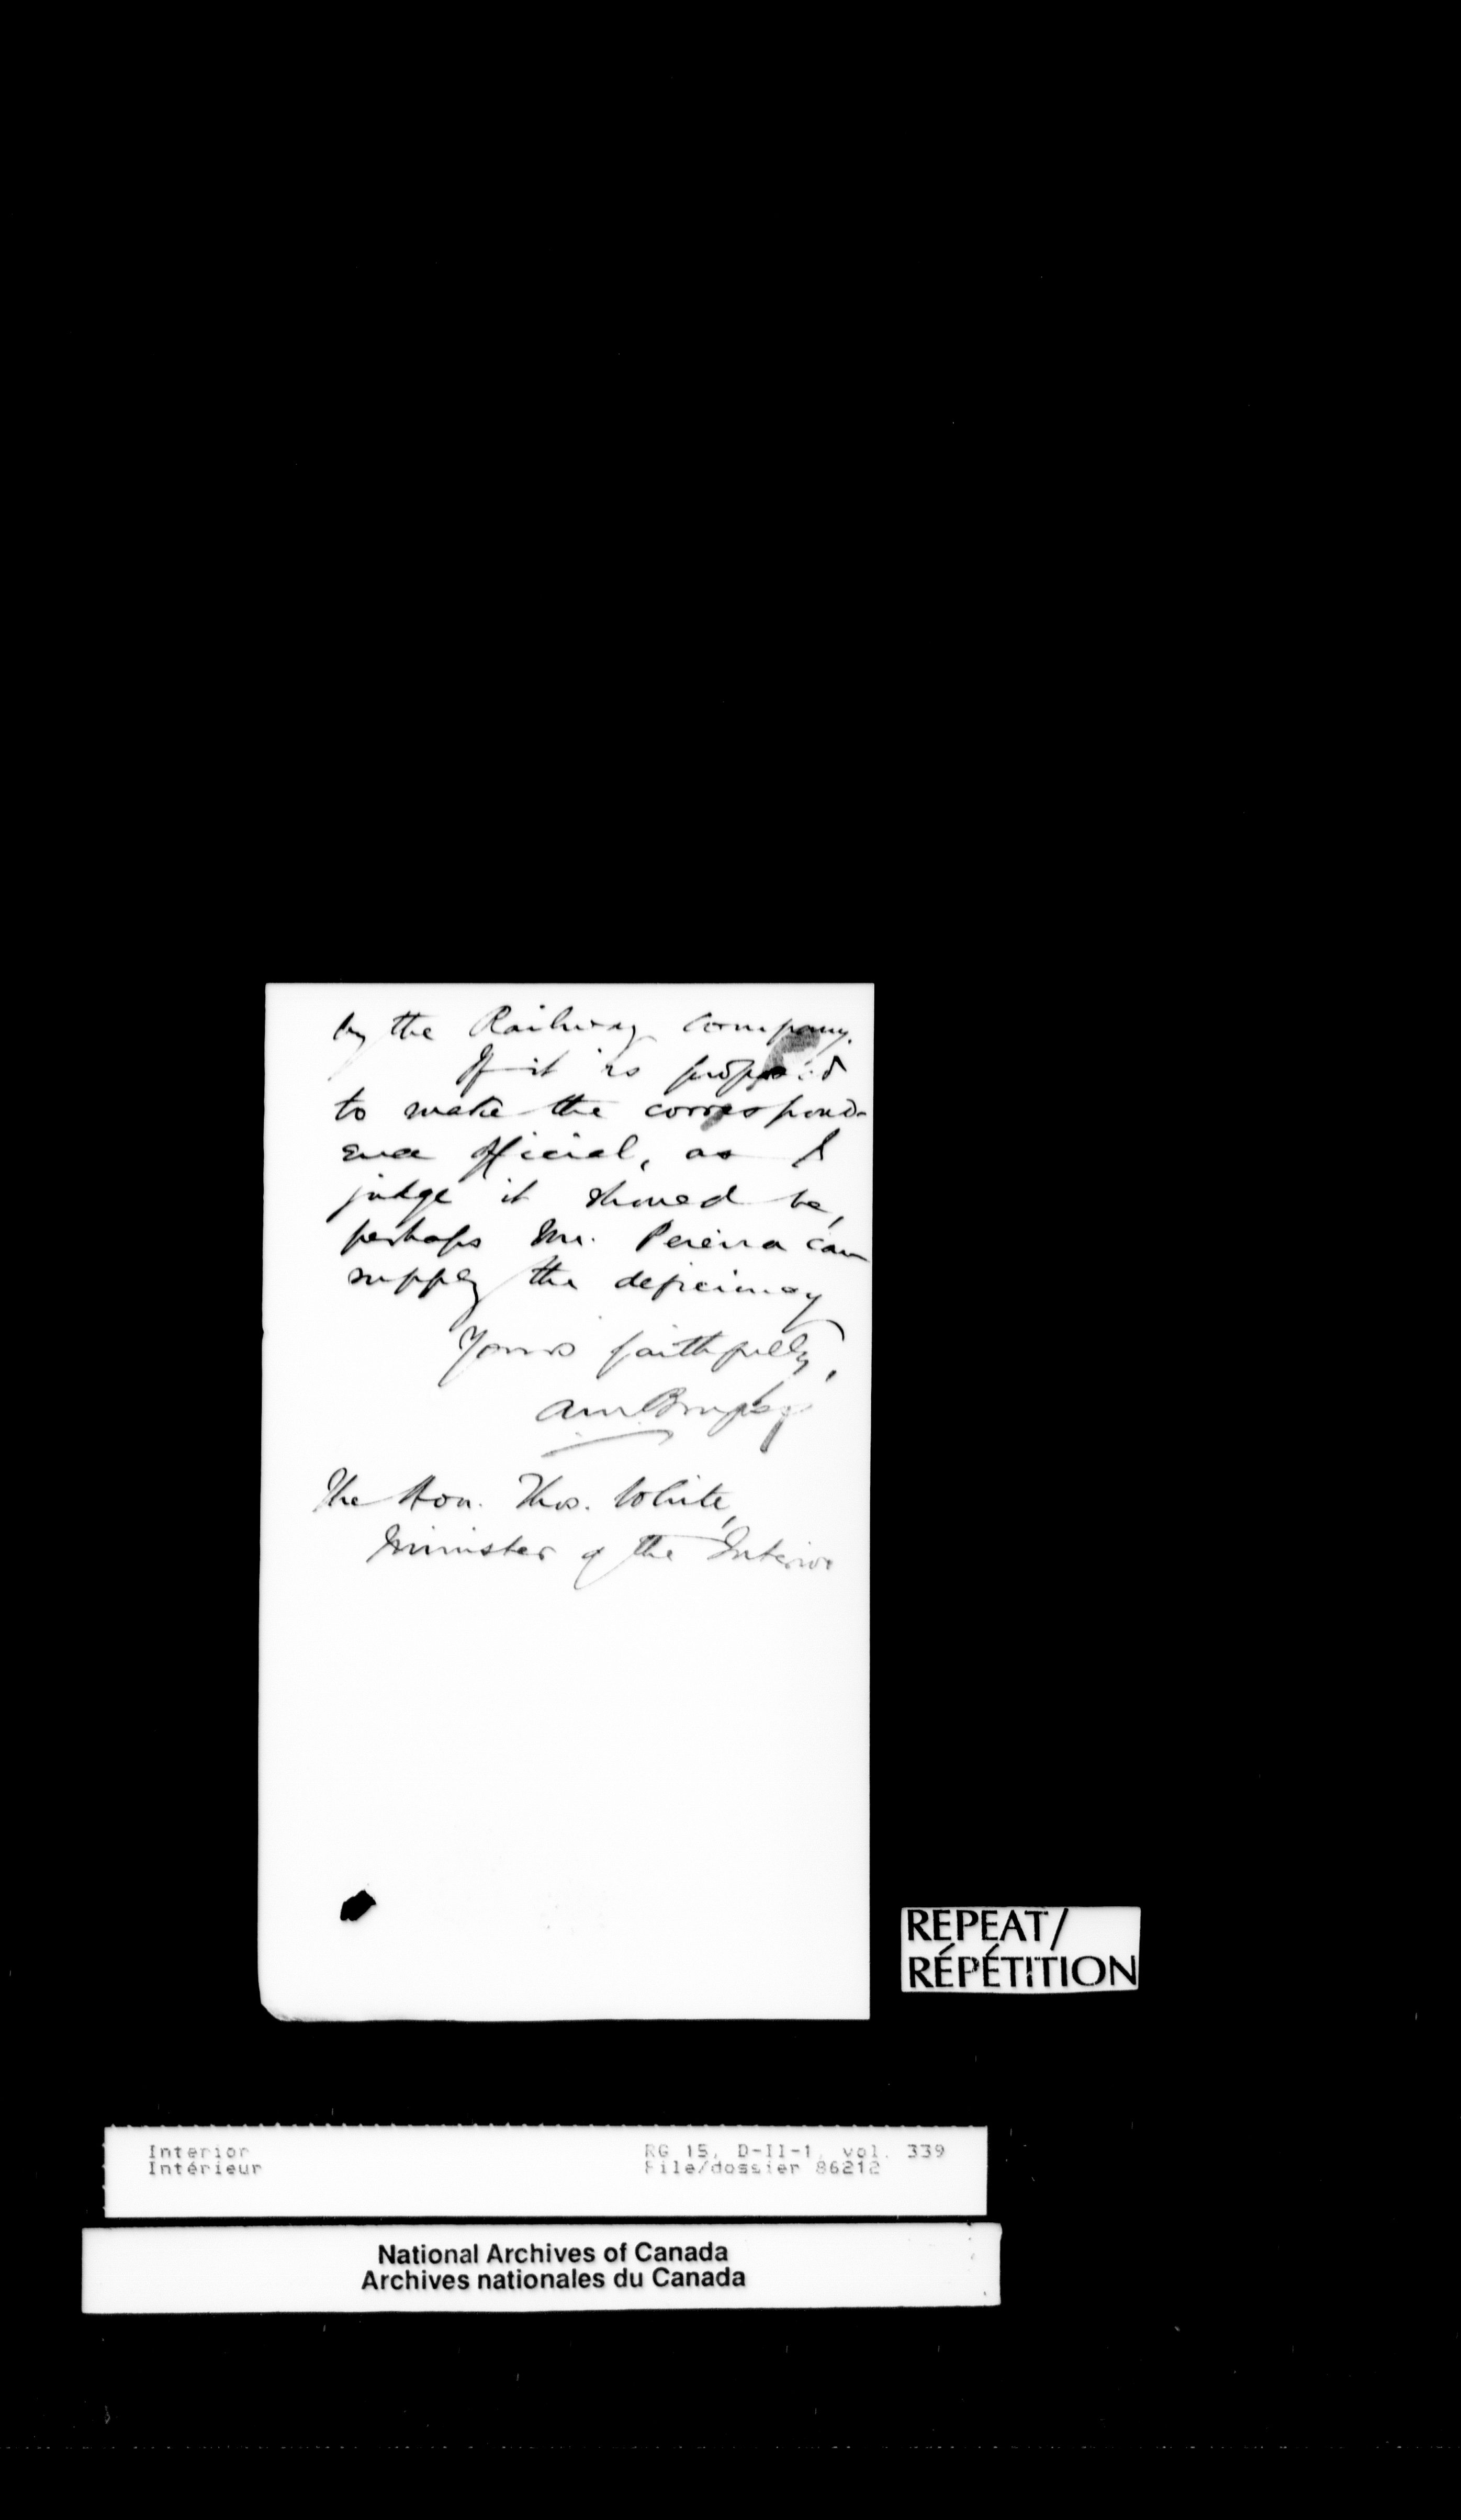 by the Railway Company.
If it is proposed
to make the correspond-
ence official, as I
judge it should be,
perhaps Mr. Pereira can
supply the deficiency
Yours faithfully,
AM Burgess
The Hon. Thos. White,
Minister of the Interior
REPEAT/
RÉPÉTITION
Interior RG 15, D-II-1, vol. 339
Intérieur File/dossier 86212
National Archives of Canada
Archives nationales du Canada